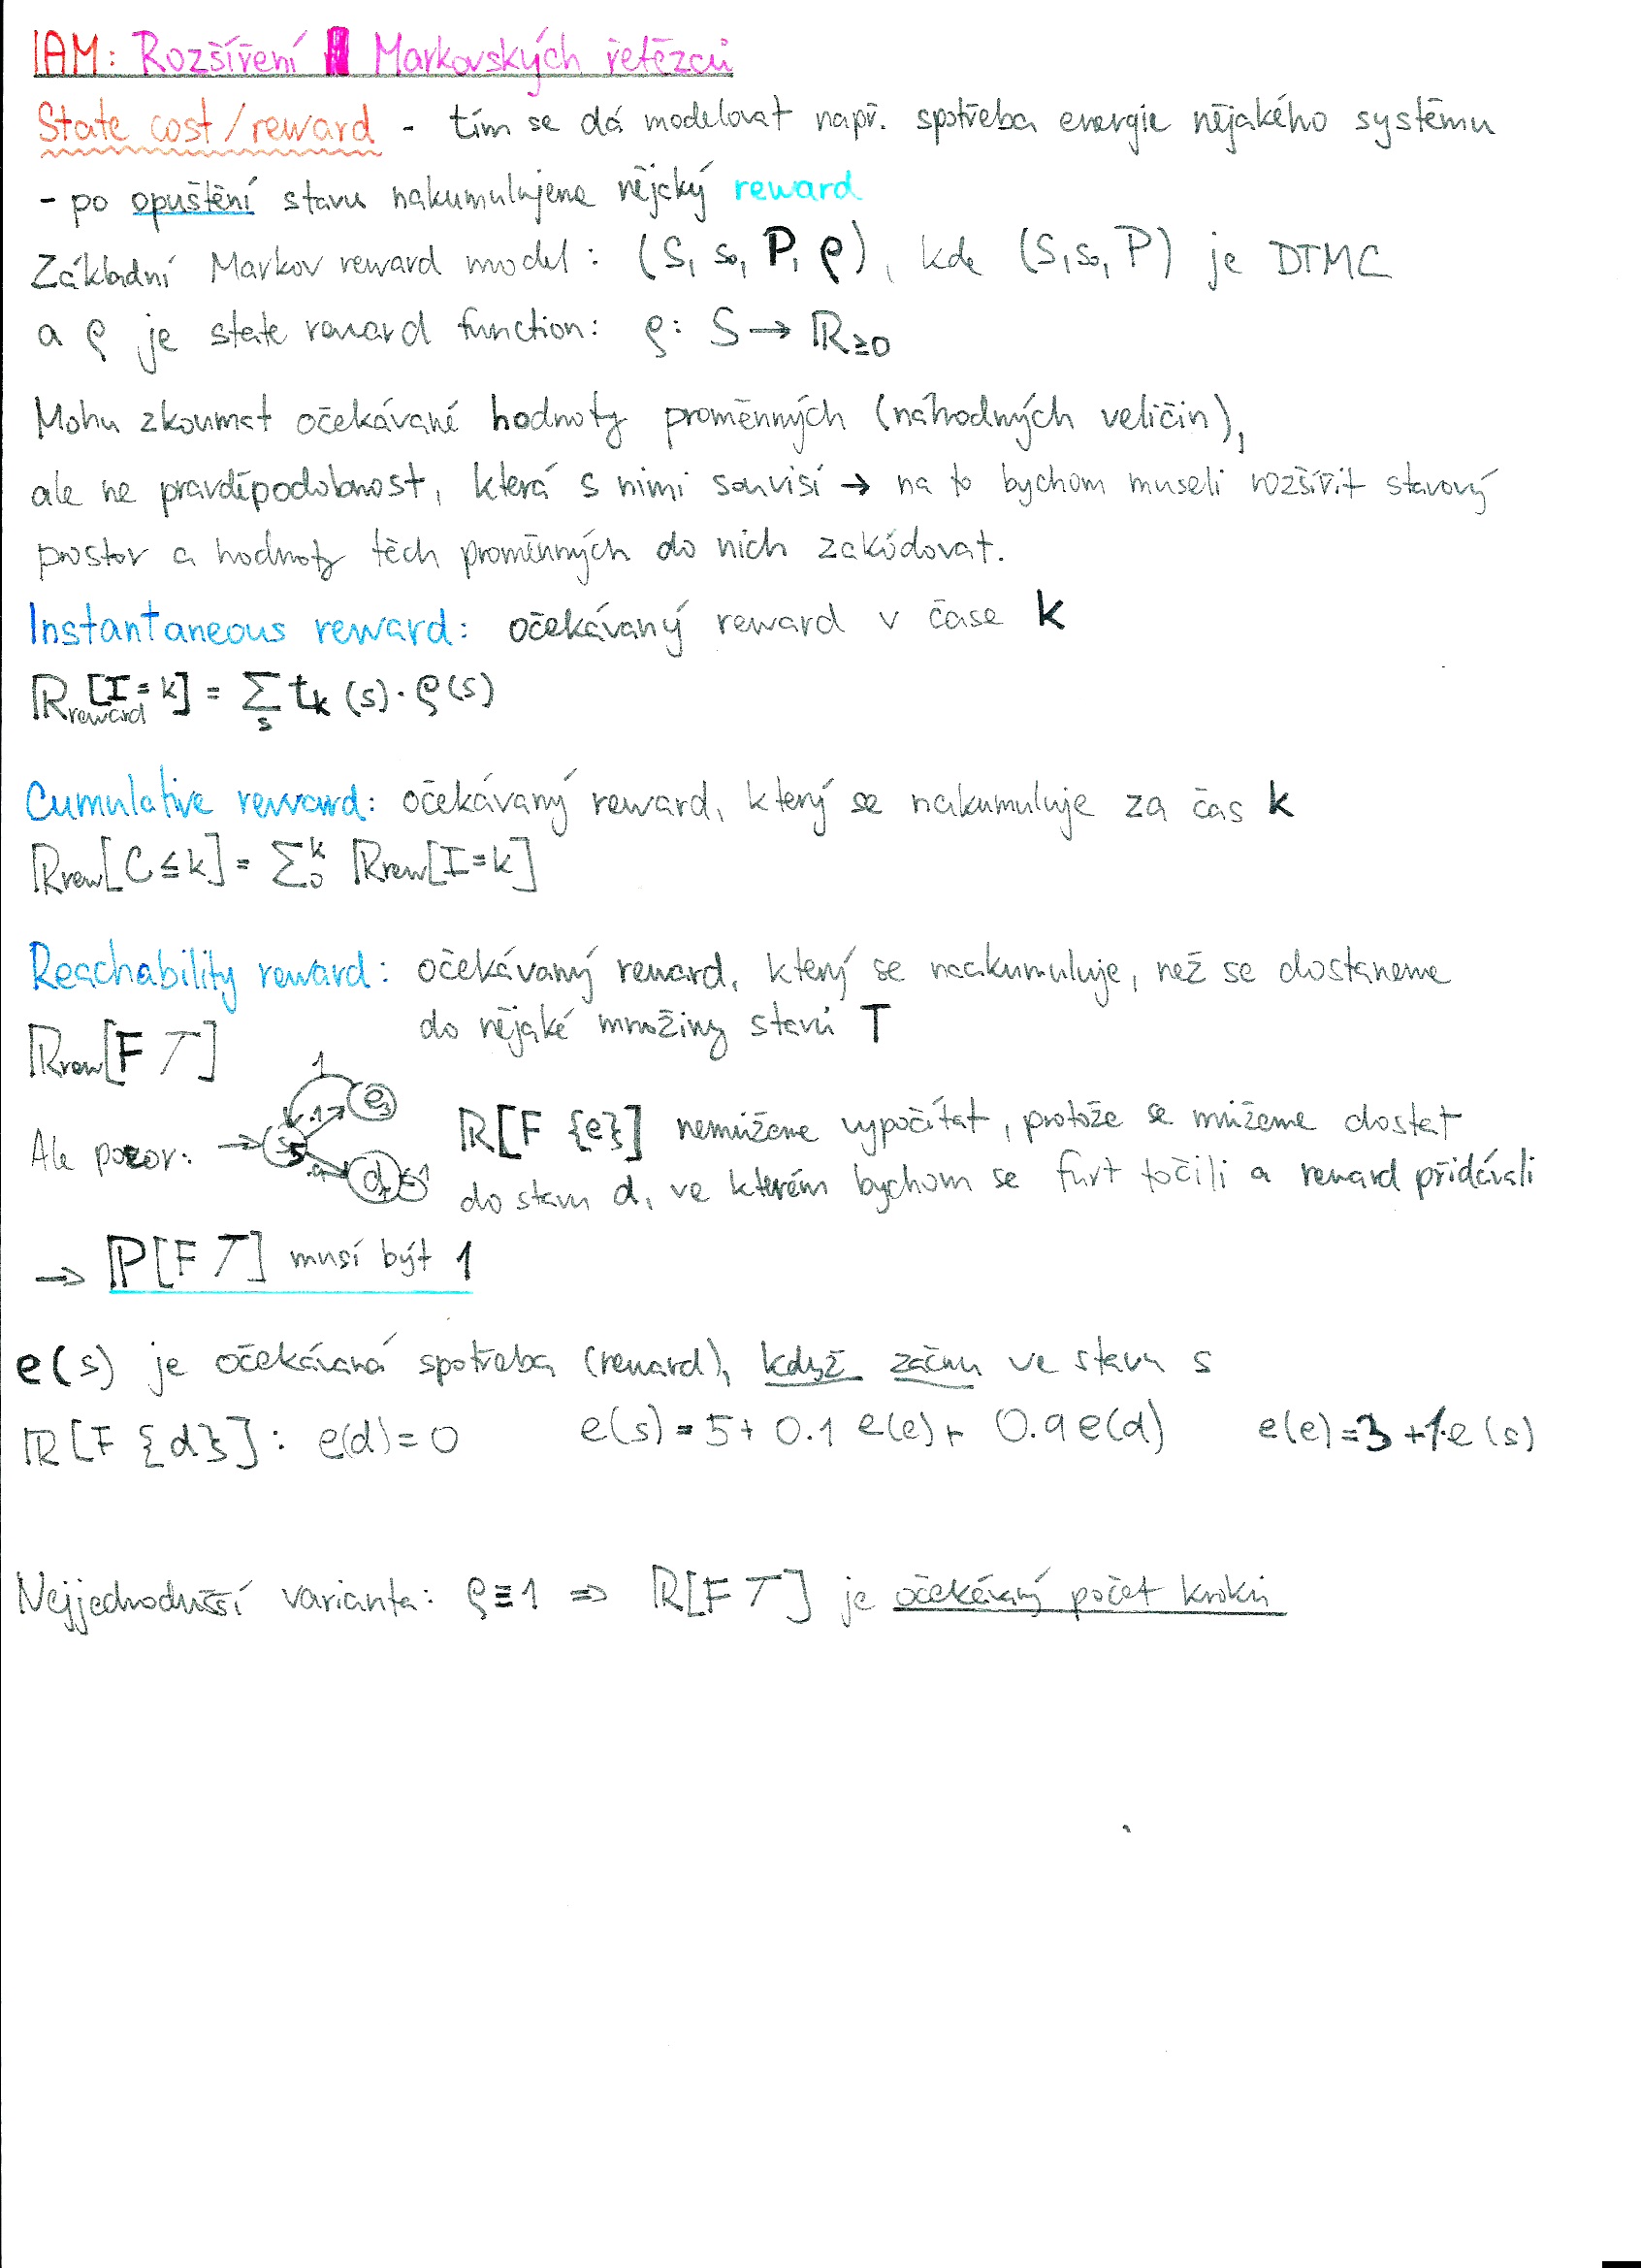 IAM: Rozšíření Markovských řetězců
State cost/reward - tím se dá modelovat např. spotřeba energie nějakého systému
- po opuštění stavu nakumulujeme nějaký reward
Základní Markov reward model: (S, s₀, P, ρ), kde (S, s₀, P) je DTMC
a ρ je state reward function: ρ: S → ℝ≥0
Mohu zkoumat očekávané hodnoty proměnných (náhodných veličin),
ale ne pravděpodobnost, která s nimi souvisí → na to bychom museli rozšířit stavový
prostor a hodnoty těch proměnných do nich zakódovat.
Instantaneous reward: očekávaný reward v čase k
ℝreward[I=k] = Σs tk(s)·ρ(s)
Cumulative reward: očekávaný reward, který se nakumuluje za čas k
ℝrew[C≤k] = Σ₀ᵏ ℝrew[I=k]
Reachability reward: očekávaný reward, který se naakumuluje, než se dostaneme
do nějaké množiny stavů T
ℝrew[F T]
1
e3
.1
Ale pozor: s5 .9 d 1
ℝ[F {e}] nemůžeme vypočítat, protože se můžeme dostat
do stavu d, ve kterém bychom se furt točili a reward přidávali
→ ℙ[F T] musí být 1
e(s) je očekávaná spotřeba (reward), když začnu ve stavu s
ℝ[F {d}]: e(d)=0 e(s)=5+0.1 e(e)+ 0.9 e(d) e(e)=3+1·e(s)
Nejjednodušší varianta: ρ≡1 ⇒ ℝ[F T] je očekávaný počet kroků